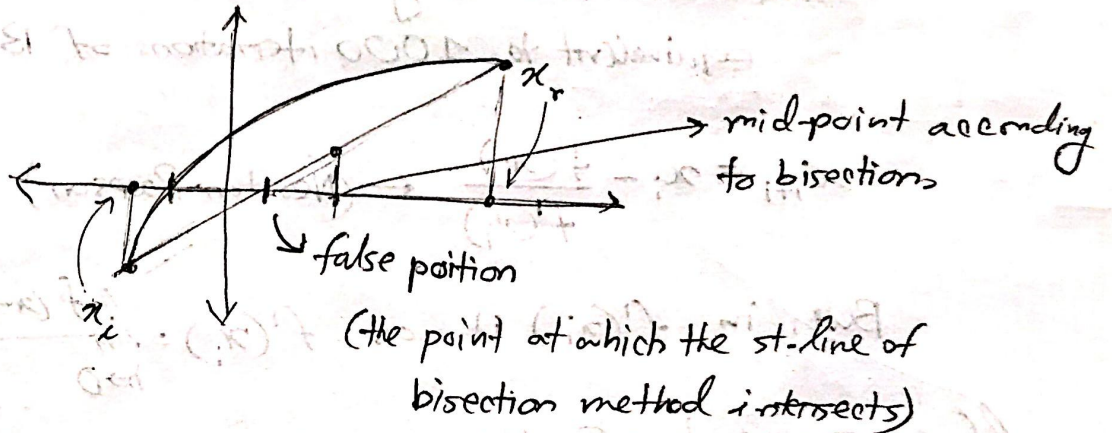 x_r
mid-point according
to bisection
false poition
x_i
(the point at which the st-line of
bisection method intersects)